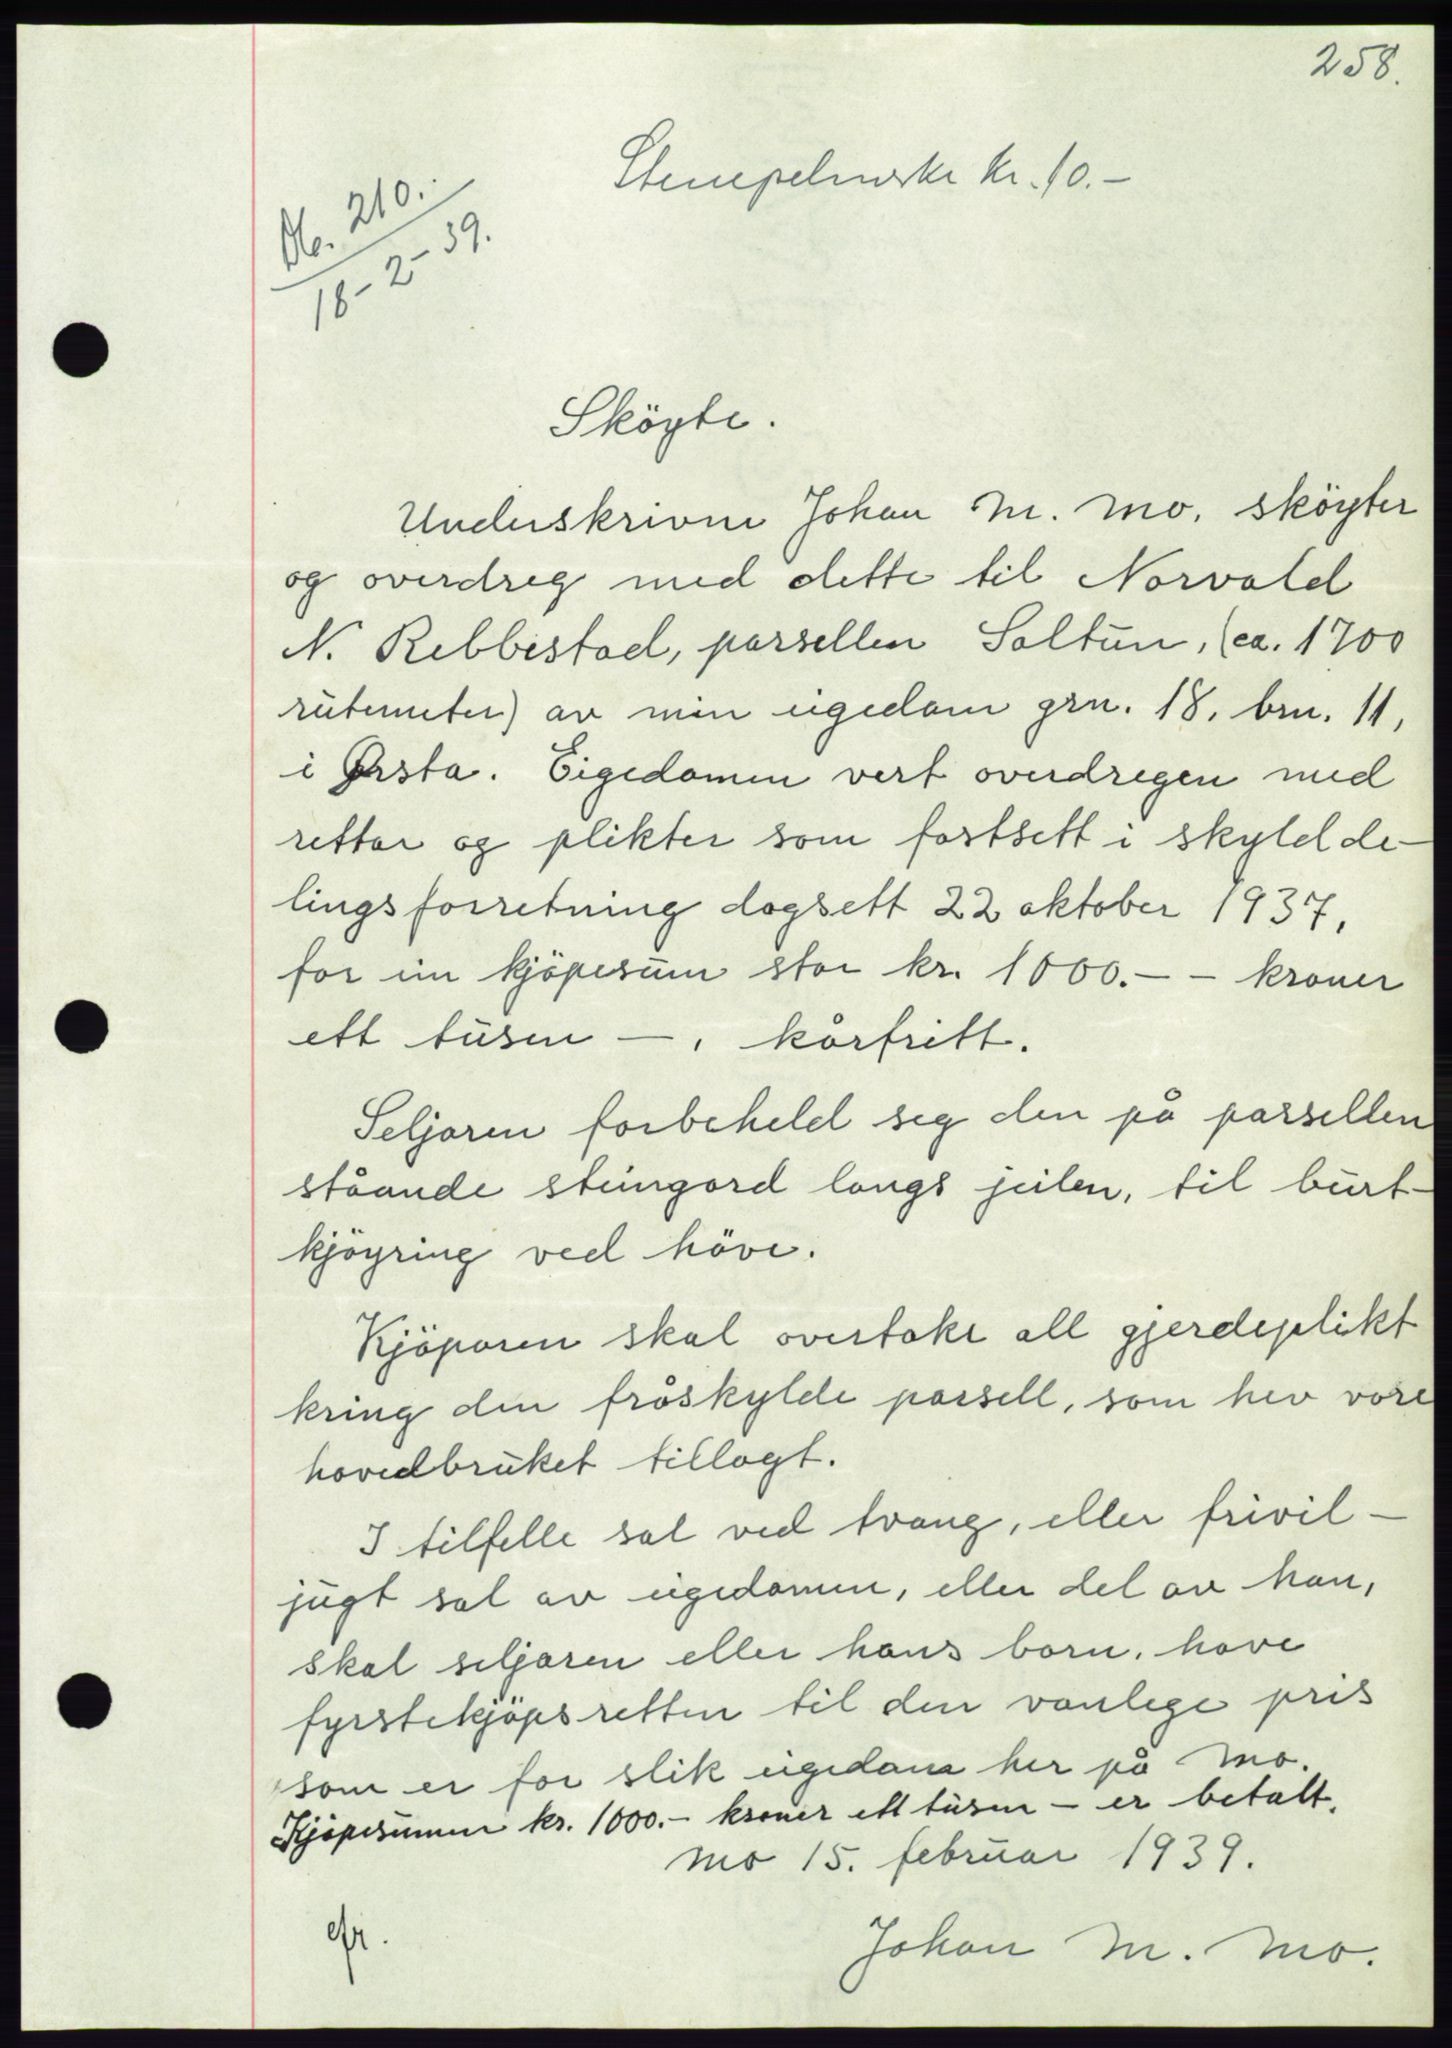 258.
Stempelmerke kr. 10.-
No. 210.
18-2-39.
Sköyte.
Underskrivne Johan M. Mo, sköyter
og overdreg med dette til Norvald
N. Rebbestad, parsellen Soltun, (ca. 1700
rutemeter) av min eigedom grn. 18, brn. 11,
i Ørsta. Eigedomen vert overdregen med
rettar og plikter som fastsett i skyldde-
lingsforretning dagsett 22 oktober 1937,
for ein kjöpesum stor kr. 1000.- - kroner
ett tusen -, kårfritt.
Seljaren forbeheld seg den på parsellen
ståande steingard langs jeilen, til burt-
kjöyring ved höve.
Kjöparen skal overtake all gjerdeplikt
kring den fråskylde parsell, som hev vore
hovedbruket tillagt.
I tilfelle sal ved tvang, eller frivil-
jugt sal av eigedomen, eller del av han,
skal seljaren eller hans born, have
fyrstekjöpsretten til den vanlege pris
som er for slik eigedom her på Mo.
Kjöpesummen kr. 1000.- kroner ett tusen - er betalt.
Mo 15. februar 1939.
Johan M. Mo.